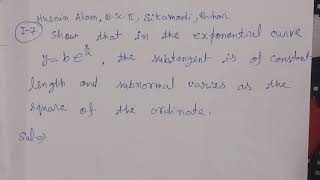 Husain Alam, B.Sc. II, Sitamadi, Bihar
I-7 Show that in the exponential curve
y = b e^{x/a}, the subtangent is of constant
length and subnormal varies as the
square of the ordinate.
Sol⇒